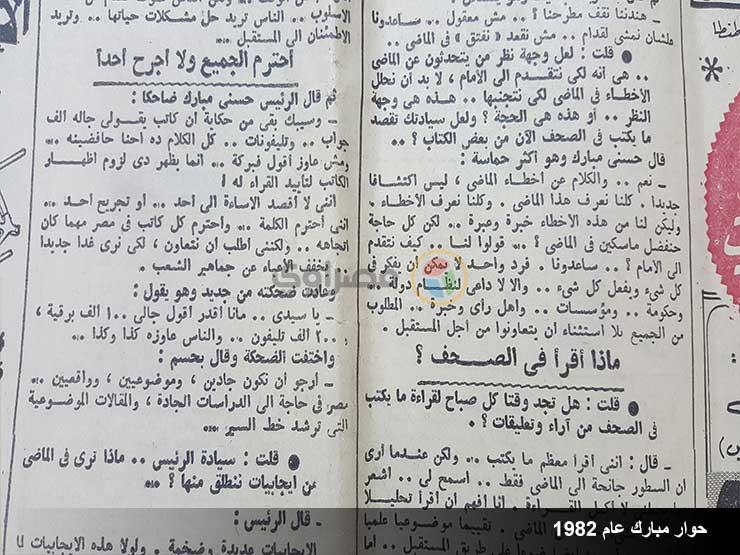 ـ هندننا نقف مطرحنا ؟ .. مش معقول .. ساعدونا
علشان نمشى لقدام .. مش نقعد « نفتق » فى الماضى .
● قلت : لعل وجهة نظر من يتحدثون عن الماضى
.. هى أنه لكى نتقدم الى الأمام ، لا بد أن نحلل
الأخطاء فى الماضى لكى نتجنبها .. هذه هى وجهة
النظر .. أو هذه هى الحجة ؟ ولعل سيادتك تقصد
ما يكتب فى الصحف الآن من بعض الكتاب ؟ ..
قال حسنى مبارك وهو أكثر حماسة :
ـ نعم .. والكلام عن أخطاء الماضى ، ليس اكتشافا
جديدا . كلنا نعرف هذا الماضى . وكلنا نعرف الأخطاء .
وليكن لنا من هذه الأخطاء خبرة وعبرة .. لكن كل حاجة
حنفضل ماسكين فى الماضى ؟ .. قولوا لنا .. كيف نتقدم
الى الامام ؟ .. ساعدونا . فرد واحد لا يمكن أن يفكر فى
كل شىء ويفعل كل شىء .. والا لا داعى لنظام دولة
وحكومة .. ومؤسسات .. وأهل رأى وخبرة .. المطلوب
من الجميع بلا استثناء أن يتعاونوا من أجل المستقبل .
ماذا أقرأ فى الصحف ؟
● قلت : هل تجد وقتا كل صباح لقراءة ما يكتب
فى الصحف من آراء وتعليقات ؟ .
ـ قال : اننى اقرأ معظم ما يكتب .. ولكن عندما أرى
أن السطور جانحة الى الماضى فقط .. اسمح لى .. أشعر
لا أكمل القراءة . انا افهم ان اقرأ تحليلا
تقييما موضوعيا علميا
على طريق المستقبل ..
الاسلوب .. الناس تريد حل مشكلات حياتها .. وتريد
الاطمئنان الى المستقبل .
احترم الجميع ولا اجرح أحدا
ثم قال الرئيس حسنى مبارك ضاحكا :
ـ وسيبك بقى من حكاية أن كاتب يقولى جاله ألف
جواب .. وتليفونات .. كل الكلام ده احنا حافضينه ..
ومش عاوز أقول فبركة .. انما يظهر دى لزوم اظهار
الكاتب لتأييد القراء له !
اننى لا أقصد الاساءة الى أحد .. أو تجريح أحد ..
اننى أحترم الكلمة .. واحترم كل كاتب فى مصر مهما كان
اتجاهه .. ولكننى أطلب أن نتعاون ، لكى نرى غدا جديدا
نخفف الأعباء عن جماهير الشعب .
وعادت ضحكته من جديد وهو يقول :
ـ يا سيدى .. مانا أقدر أقول جالى ١٠٠ ألف برقية ،
٢٠٠ ألف تليفون .. والناس عاوزه كذا وكذا ..
واختفت الضحكة وقال بحسم :
ـ أرجو أن نكون جادين ، وموضوعيين ، وواقعيين ..
مصر فى حاجة الى الدراسات الجادة ، والمقالات الموضوعية
التى ترشد خط السير ..
● قلت : سيادة الرئيس .. ماذا نرى فى الماضى
من ايجابيات ننطلق منها ؟ ..
ـ قال الرئيس :
الايجابيات عديدة وضخمة .. ولولا هذه الايجابيات لما
مصراوى
حوار مبارك عام 1982